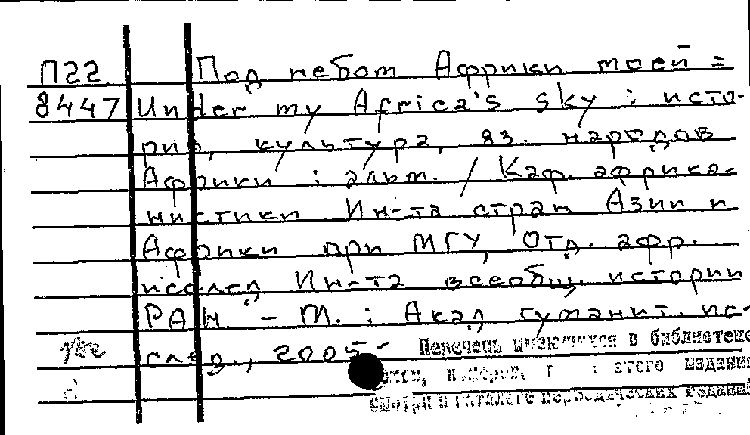 П22 Под небом Африки моей =
8447 Under my Africa's sky : исто-
рия, культура, яз. народов
Африки : альм. / Каф. африка-
нистики Ин-та стран Азии и
Африки при МГУ, Отд. афр.
исслед Ин-та всеобщ. истории
РАН. - М. : Акад гуманит. ис-
след., 2005-
Перечень имеющихся в библиотеке
этого издания
смотри в каталоге периодических изданий